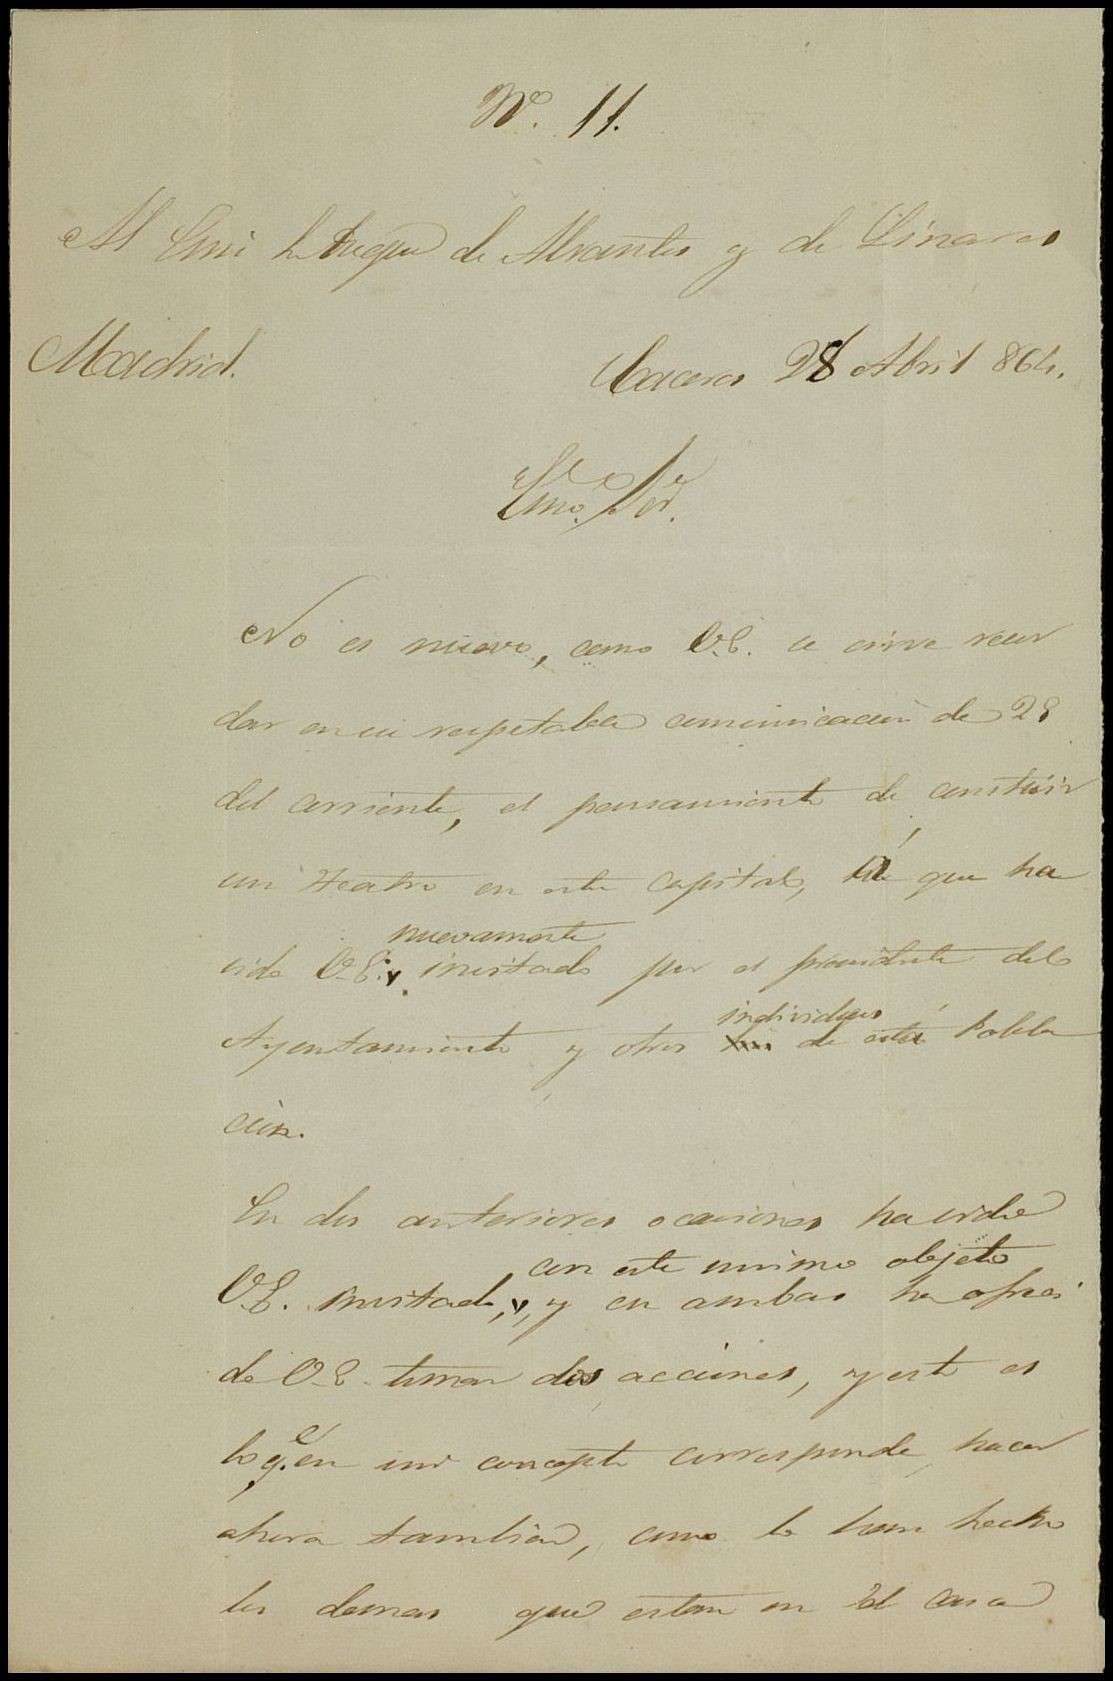 Nº. 11.
Al Emi Sr Duque de Abrantes y de Linares
Madrid.
Caceres 28 Abril 864.
Emo. Sor.
No es nuevo, como V.E. se sirve recor
dar en su respetable comunicacion de 28
del corriente, el pensamiento de construir
un teatro en esta capital, á que ha
nuevamente
sido V.E. invitado por el presidente del
individuos
Ayuntamiento y otros de esta Pobla
cion.
En dos anteriores ocasiones ha sido
con este mismo objeto
V.E. invitado, y en ambas ha ofreci
do V.E. tomar dos acciones, y esto es
lo q.e en mi concepto corresponde hacer
ahora tambien, como lo han hecho
los demas que estan en el caso